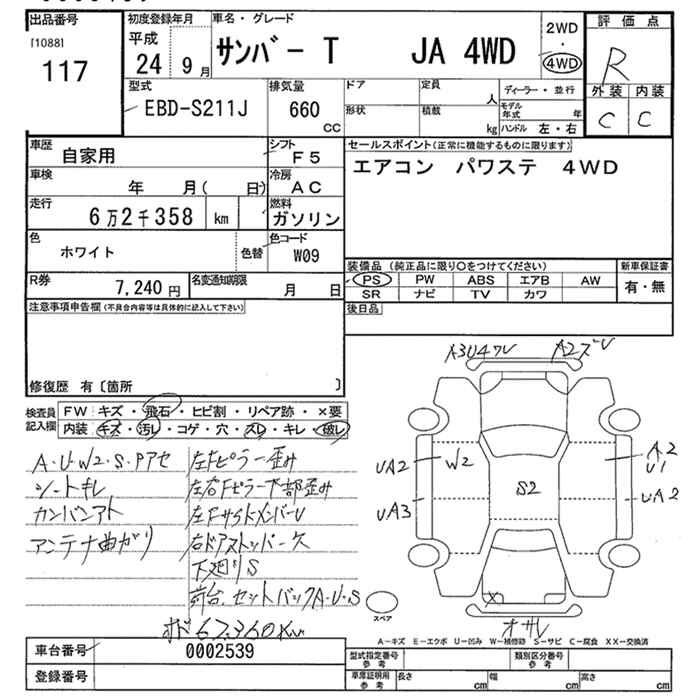 出品番号 初度登録年月 車名・グレード 評価点
[1088] 平成 サンバー T JA 4WD 2WD・4WD R
117 24 9月
型式 排気量 ドア 定員 人 ディーラー・並行 外装 内装
EBD-S211J 660 CC 形状 積載 kg モデル年式 年 C C
ハンドル 左・右
車歴 自家用 シフト F5 セールスポイント(正常に機能するものに限ります)
車検 年 月( 日) 冷房 AC エアコン パワステ 4WD
走行 6万2千358 km 燃料 ガソリン
色 ホワイト 色替 色コード W09
装備品 (純正品に限り○をつけてください) 新車保証書
R券 7,240円 名変通知期限 月 日 PS PW ABS エアB AW 有・無
SR ナビ TV カワ
注意事項申告欄(不具合内容等は具体的に記入して下さい) 後日品
修復歴 有〔箇所 〕
検査員記入欄 FW キズ・飛石・ヒビ割・リペア跡・×要
内装 キズ・汚レ・コゲ・穴・スレ・キレ・破レ
A・U・W2・S・Pアセ 左Fピラー歪み
シートキレ 左右Fピラー下部歪み
カンバンアト 左FサイドメンバーU
アンテナ曲がり 右ドアストッパーケ
下廻りS
荷台、セットバックA・U・S
オド67,360Km
A3U4ワレ A2ズレ
UA2 W2 A2 U1
S2
UA3 UA2
X
オサレ
スペア
A-キズ E-エクボ U-凹み W-補修跡 S-サビ C-腐食 XX-交換済
車台番号 0002539 型式指定番号 参考 類別区分番号 参考
登録番号 車庫証明用 参考 長さ cm 幅 cm 高さ cm